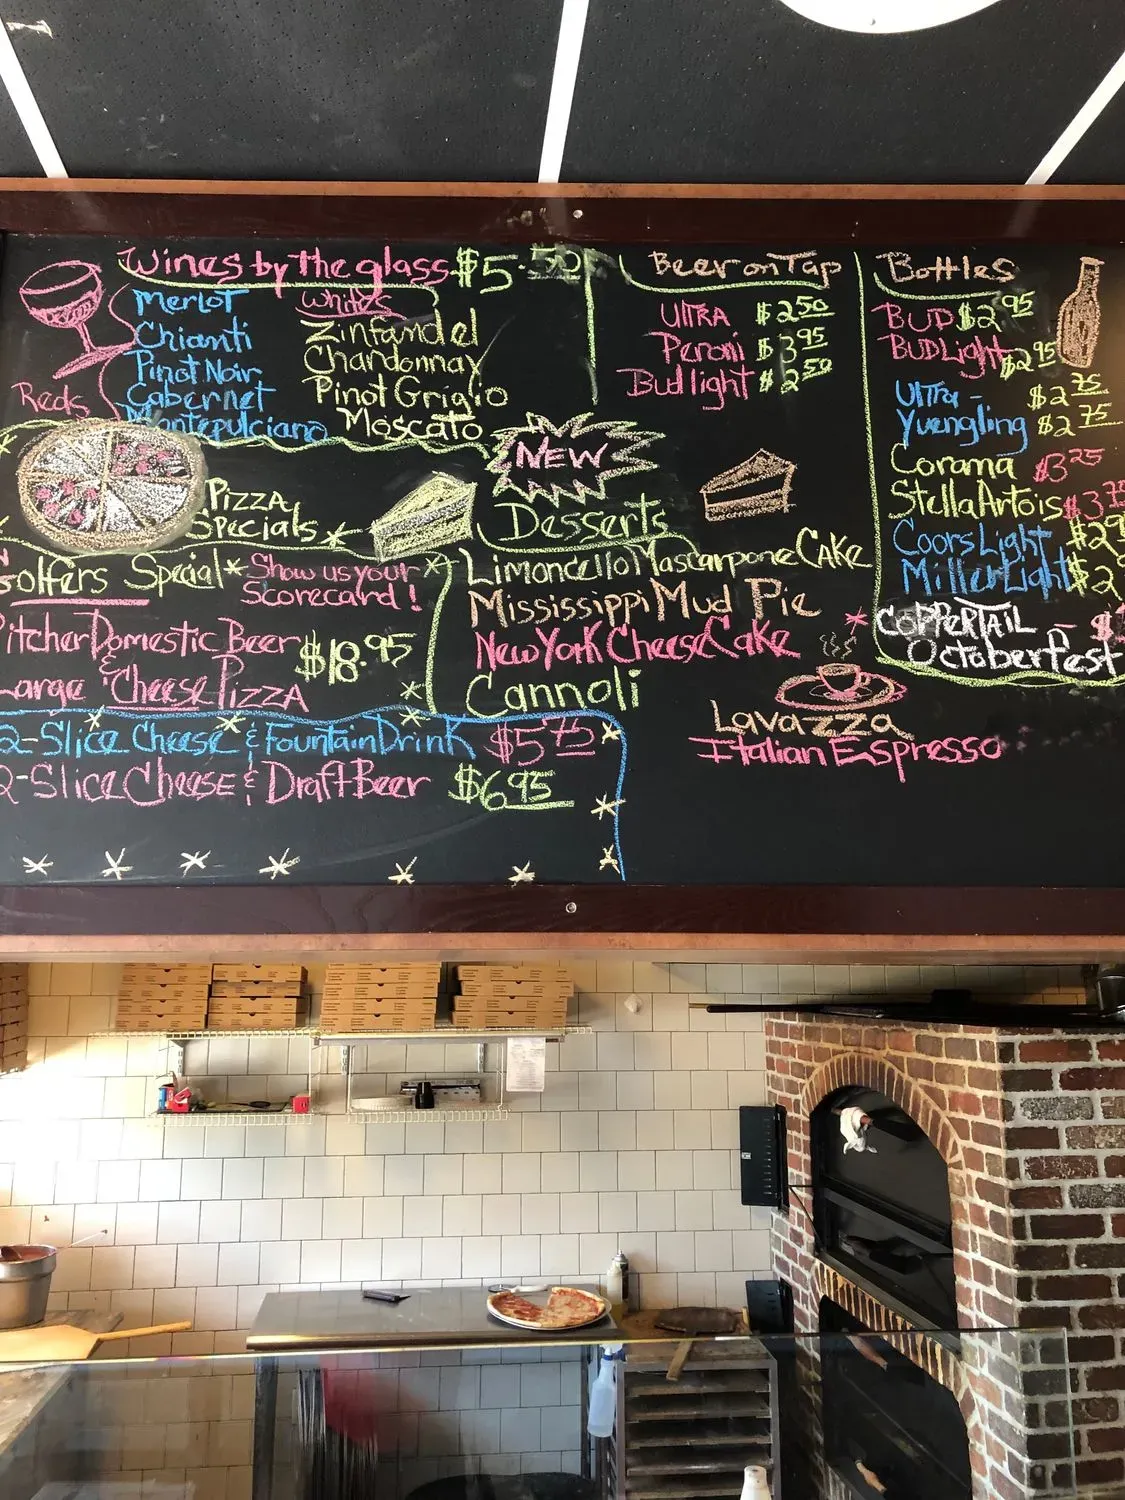 Wines by the glass $5.50
Reds
Merlot
Chianti
Pinot Noir
Cabernet
Montepulciano
Whites
Zinfandel
Chardonnay
Pinot Grigio
Moscato
Beer on Tap
Ultra $2.50
Peroni $3.95
Bud light $2.50
Bottles
BUD $2.95
BUD Light $2.95
Ultra - $2.75
Yuengling $2.75
Corama $3.25
Stella Artois $3.75
Coors Light
Miller Light
Coppertail -
Octoberfest
Pizza
Specials
Golfers Special * Show us your
Scorecard!
Pitcher Domestic Beer
&
Large Cheese Pizza
$18.95
2-Slice Cheese & Fountain Drink $5.75
2-Slice Cheese & Draft Beer $6.95
NEW
Desserts
Limoncello Mascarpone Cake
Mississippi Mud Pie
New York Cheese Cake
Cannoli
Lavazza
Italian Espresso